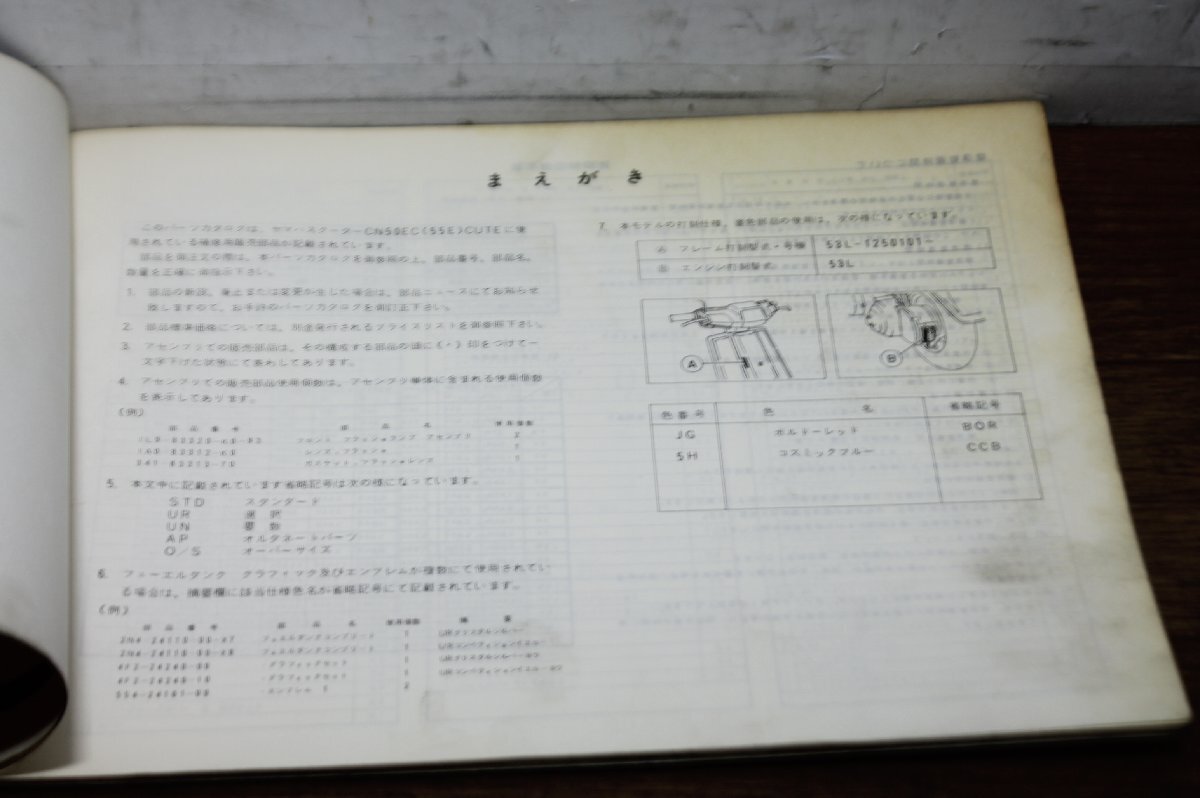 まえがき
このパーツカタログは、ヤマハスクーターCN50EC(55E)CUTEに使
用されている補修用販売部品が記載されています。
部品を御注文の際は、本パーツカタログを御参照の上、部品番号、部品名、
数量を正確に御指示下さい。
1. 部品の新設、廃止または変更が生じた場合は、部品ニュースにてお知らせ
致しますので、お手許のパーツカタログを御訂正下さい。
2. 部品標準価格については、別途発行されるプライスリストを御参照下さい。
3. アセンブリでの販売部品は、その構成する部品の頭に(・)印をつけて一
文字下げた状態にて表わしてあります。
4. アセンブリでの販売部品使用個数は、アセンブリ単体に含まれる使用個数
を表示してあります。
(例)
部品番号 部品名 使用個数
フロント フラッシャランプ アセンブリ 2
レンズ,フラッシャ 1
ガスケット,フラッシャレンズ 1
5. 本文中に記載されています省略記号は次の様になっています。
STD スタンダード
UR 選択
UN 要数
AP オルタネートパーツ
O/S オーバーサイズ
6. フューエルタンク グラフィック及びエンブレムが複数にて使用されてい
る場合は、摘要欄に該当仕様色名が省略記号にて記載されています。
(例)
部品番号 部品名 使用個数 摘要
フュエルタンクコンプリート 1
フュエルタンクコンプリート 1
4F2-24240-00 ・グラフィックセット 1
4F2-24240-10 ・グラフィックセット 1
・エンブレム 2
7. 本モデルの打刻仕様、着色部品の使用は、次の様になっています。
A フレーム打刻型式・号機 53L-1250101~
B エンジン打刻型式 53L
A
B
色番号 色名 省略記号
JG ボルドーレッド BOR
5H コスミックブルー CCB